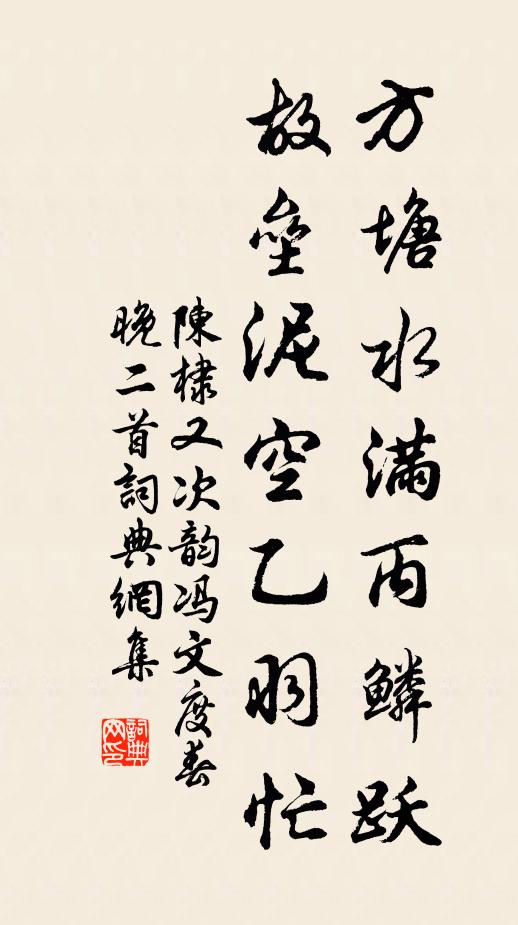 方塘水满丙鳞跃
故垒泥空乙羽忙
陳棣又次韵冯文度春
晚二首詞典網集
詞典网印